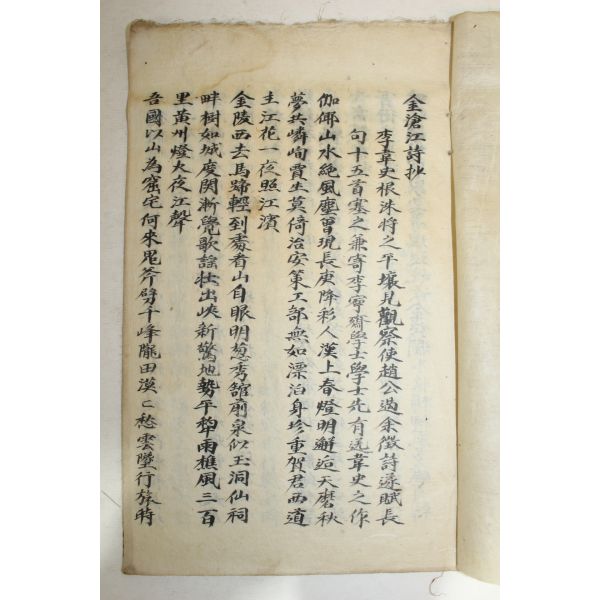 金滄江詩抄
李韋史根洙將之平壤見觀察使趙公過余徵詩遂賦長
句十五首塞之兼寄李寧齋學士學士先有送韋史之作
伽倻山水絶風塵曾現長庚降彩人漢上春燈明邂逅天磨秋
夢共嶙峋賈生莫倚治安策工部無如漂泊身珍重賀君西道
主江花一夜照江濱
金陵西去馬蹄輕到處看山自眼明葱秀舘前泉似玉洞仙祠
畔樹如城度関漸覺歌謠壯出峽新驚地勢平犂雨樵風三百
里黃州燈火夜江聲
吾國以山為窟宅何來鬼斧劈千峰隴田漠〻愁雲墜行旅時